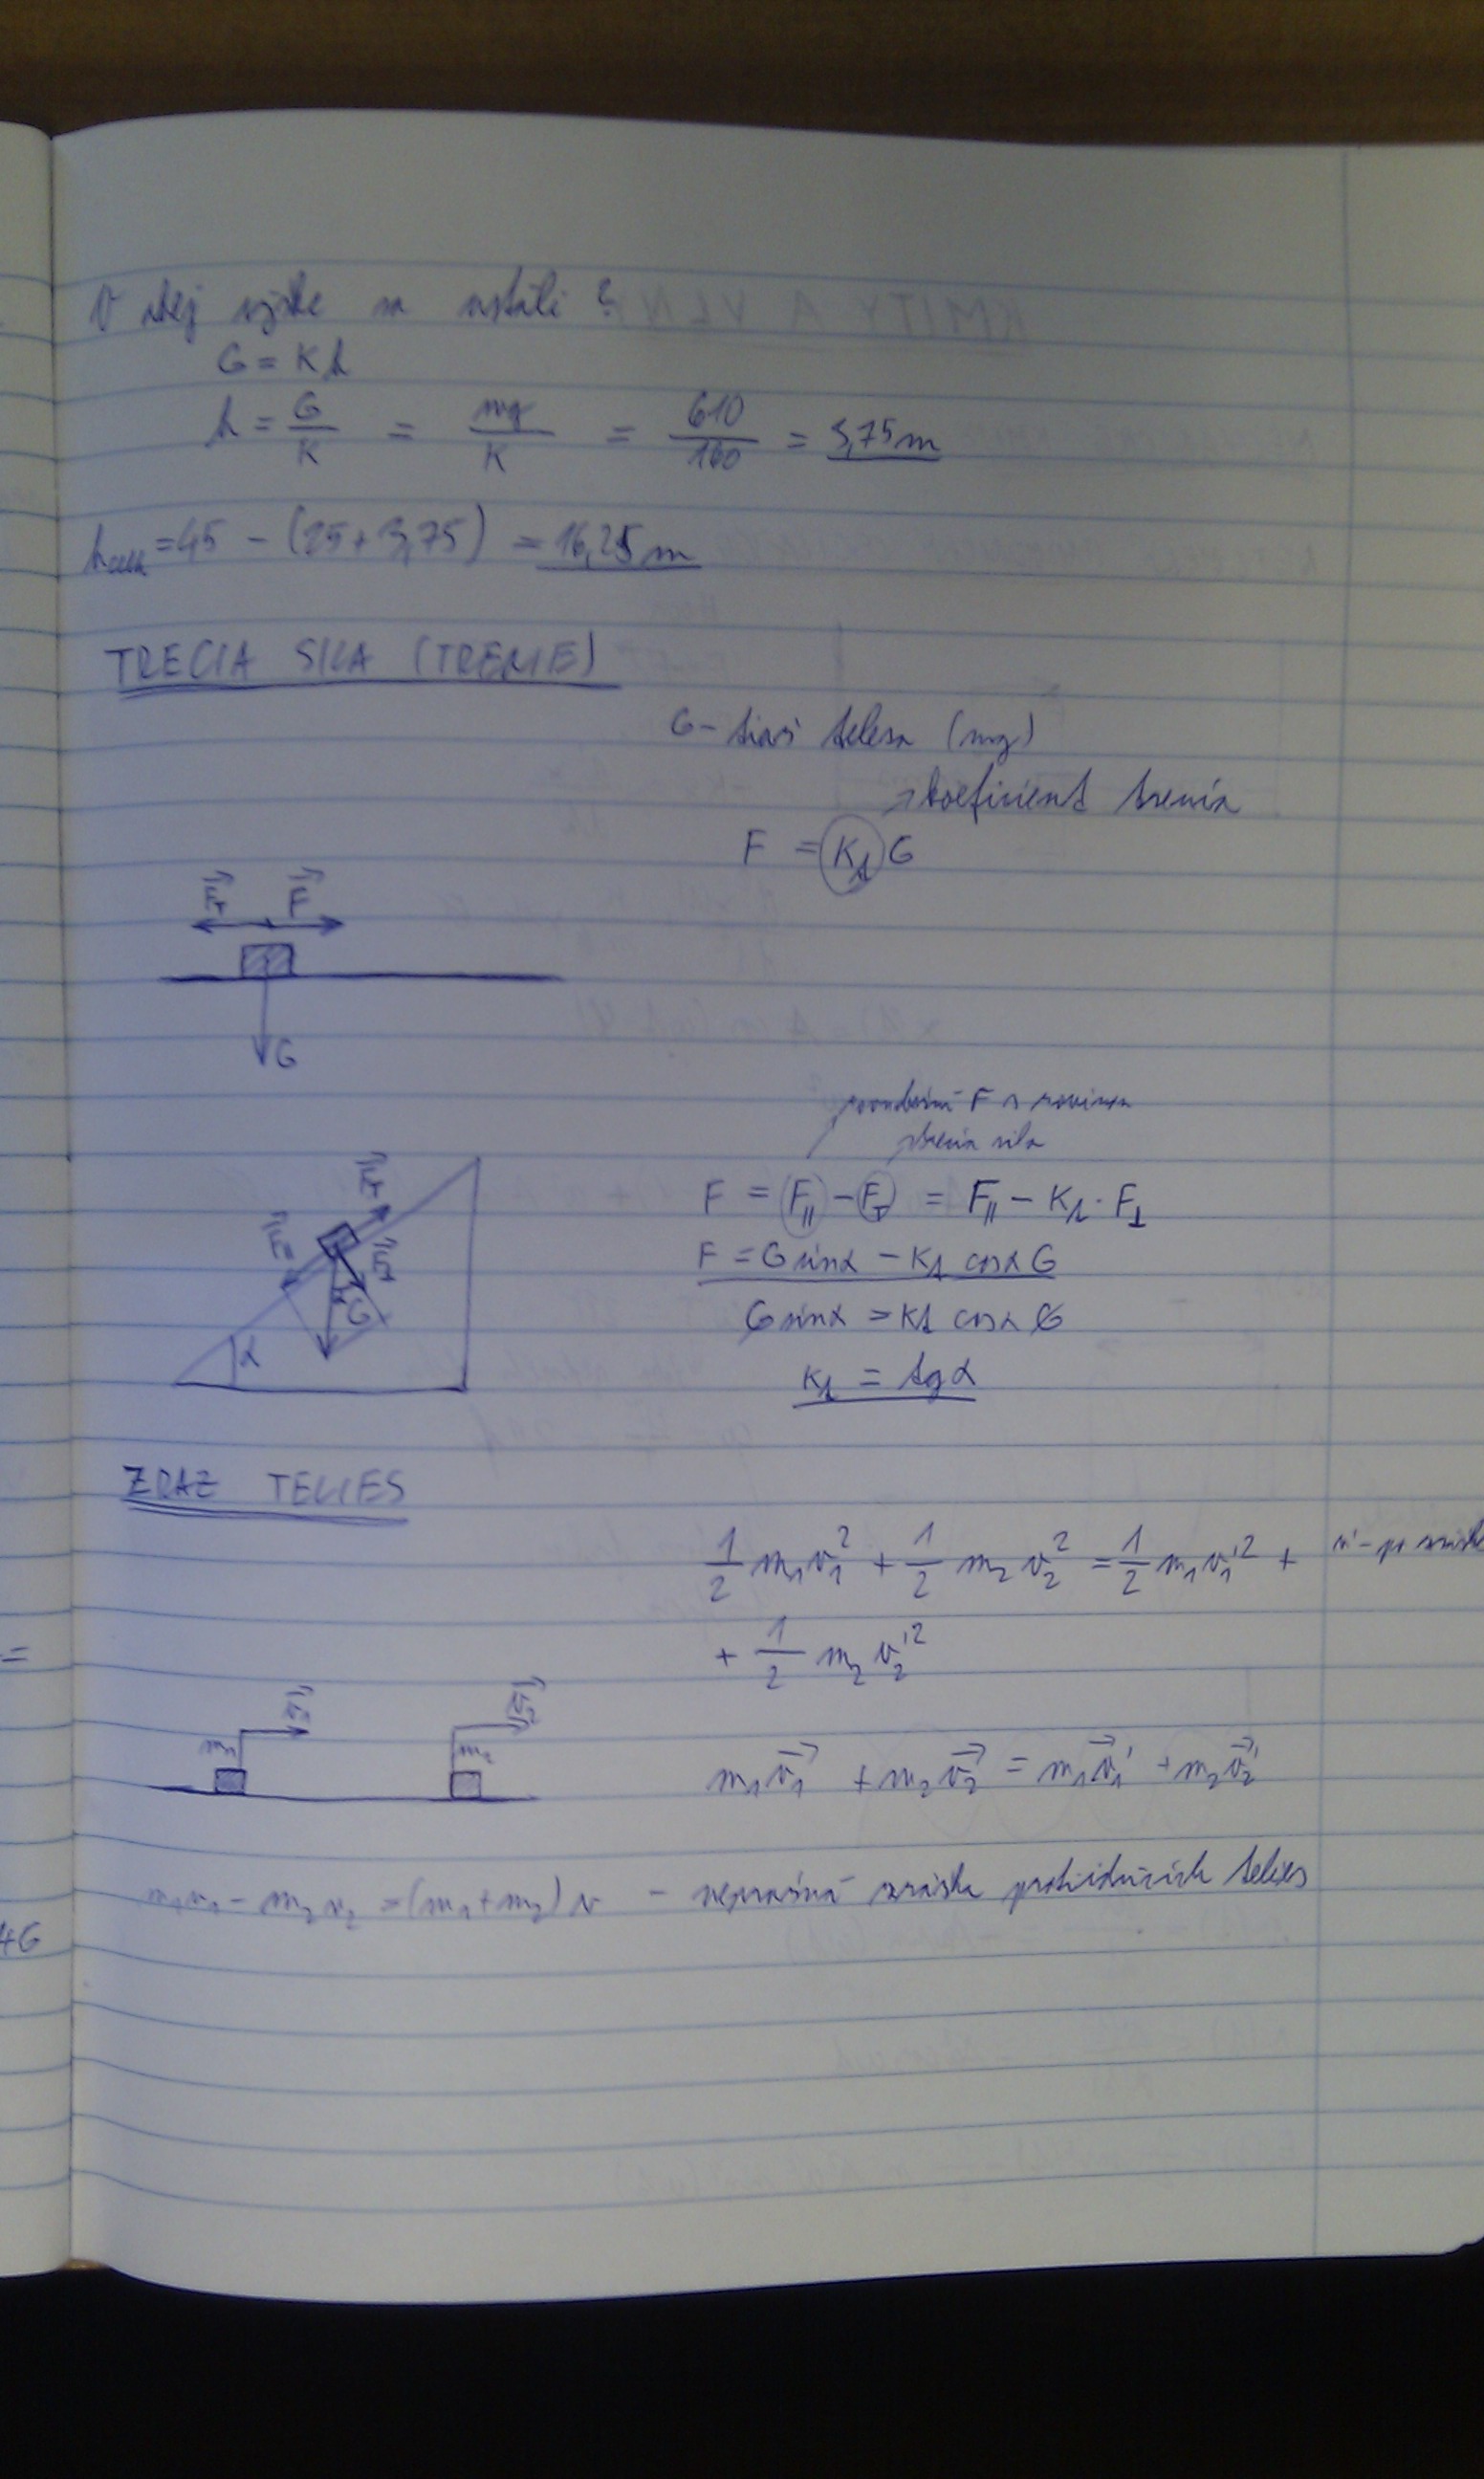 V akej výške sa ustáli?
G = K h
h = G/K = mg/K = 610/160 = 3,75 m
h = 45 - (25 + 3,75) = 16,25 m
TRECIA SILA (TRENIE)
G - tiaž telesa (mg)
→ koeficient trenia
F = Kt G
FT F
G
F s rovinou
trecia sila
F = F∥ - FT = F∥ - Kt · F⊥
F = G sinα - Kt cosα G
G sinα = Kt cosα G
Kt = tgα
FT
F∥ F⊥
G
α
ZRAZ TELIES
1/2 m₁v₁² + 1/2 m₂v₂² = 1/2 m₁v₁'² + v' - po zrážke
+ 1/2 m₂v₂'²
v₁ v₂
m₁ m₂
m₁v₁ + m₂v₂ = m₁v₁' + m₂v₂'
m₁v₁ - m₂v₂ = (m₁+m₂) v - nepružná zrážka protiidúcich telies
=
4G